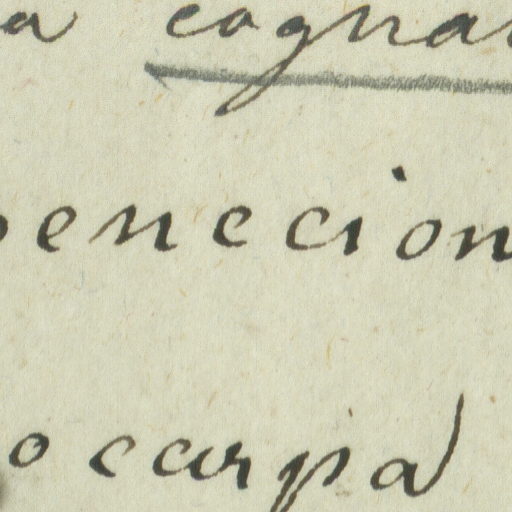 a cogna
enecion
ocarpa